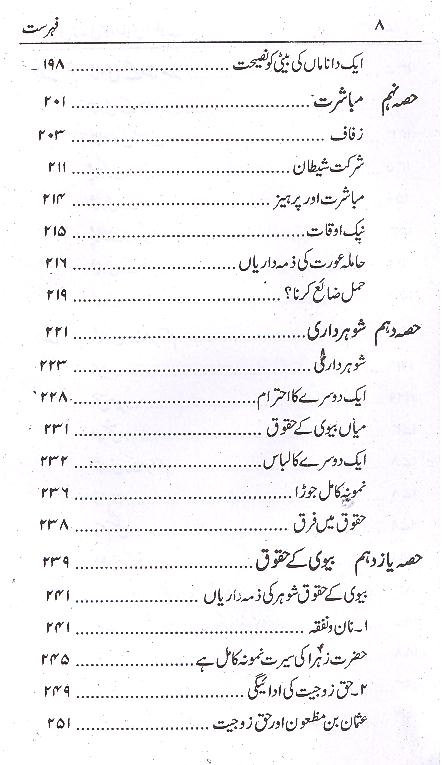 ۸ فہرست
ایک دانا ماں کی بیٹی کو نصیحت ........................ ۱۹۸
حصہ نہم مباشرت ........................ ۲۰۱
زفاف ........................ ۲۰۳
شرکت شیطان ........................ ۲۱۱
مباشرت اور پرہیز ........................ ۲۱۴
نیک اوقات ........................ ۲۱۵
حاملہ عورت کی ذمہ داریاں ........................ ۲۱۶
حمل ضائع کرنا؟ ........................ ۲۱۹
حصہ دہم شوہرداری ........................ ۲۲۱
شوہرداری ........................ ۲۲۳
ایک دوسرے کا احترام ........................ ۲۲۸
میاں بیوی کے حقوق ........................ ۲۳۱
ایک دوسرے کا لباس ........................ ۲۳۲
نمونہ کامل جوڑا ........................ ۲۳۶
حقوق میں فرق ........................ ۲۳۸
حصہ یازدہم بیوی کے حقوق ........................ ۲۳۹
بیوی کے حقوق شوہر کی ذمہ داریاں ........................ ۲۴۱
۱۔ نان و نفقہ ........................ ۲۴۱
حضرت زہرؑا کی سیرت نمونہ کامل ہے ........................ ۲۴۵
۲۔ حق زوجیت کی ادائیگی ........................ ۲۴۹
عثمان بن مظعون اور حق زوجیت ........................ ۲۵۱